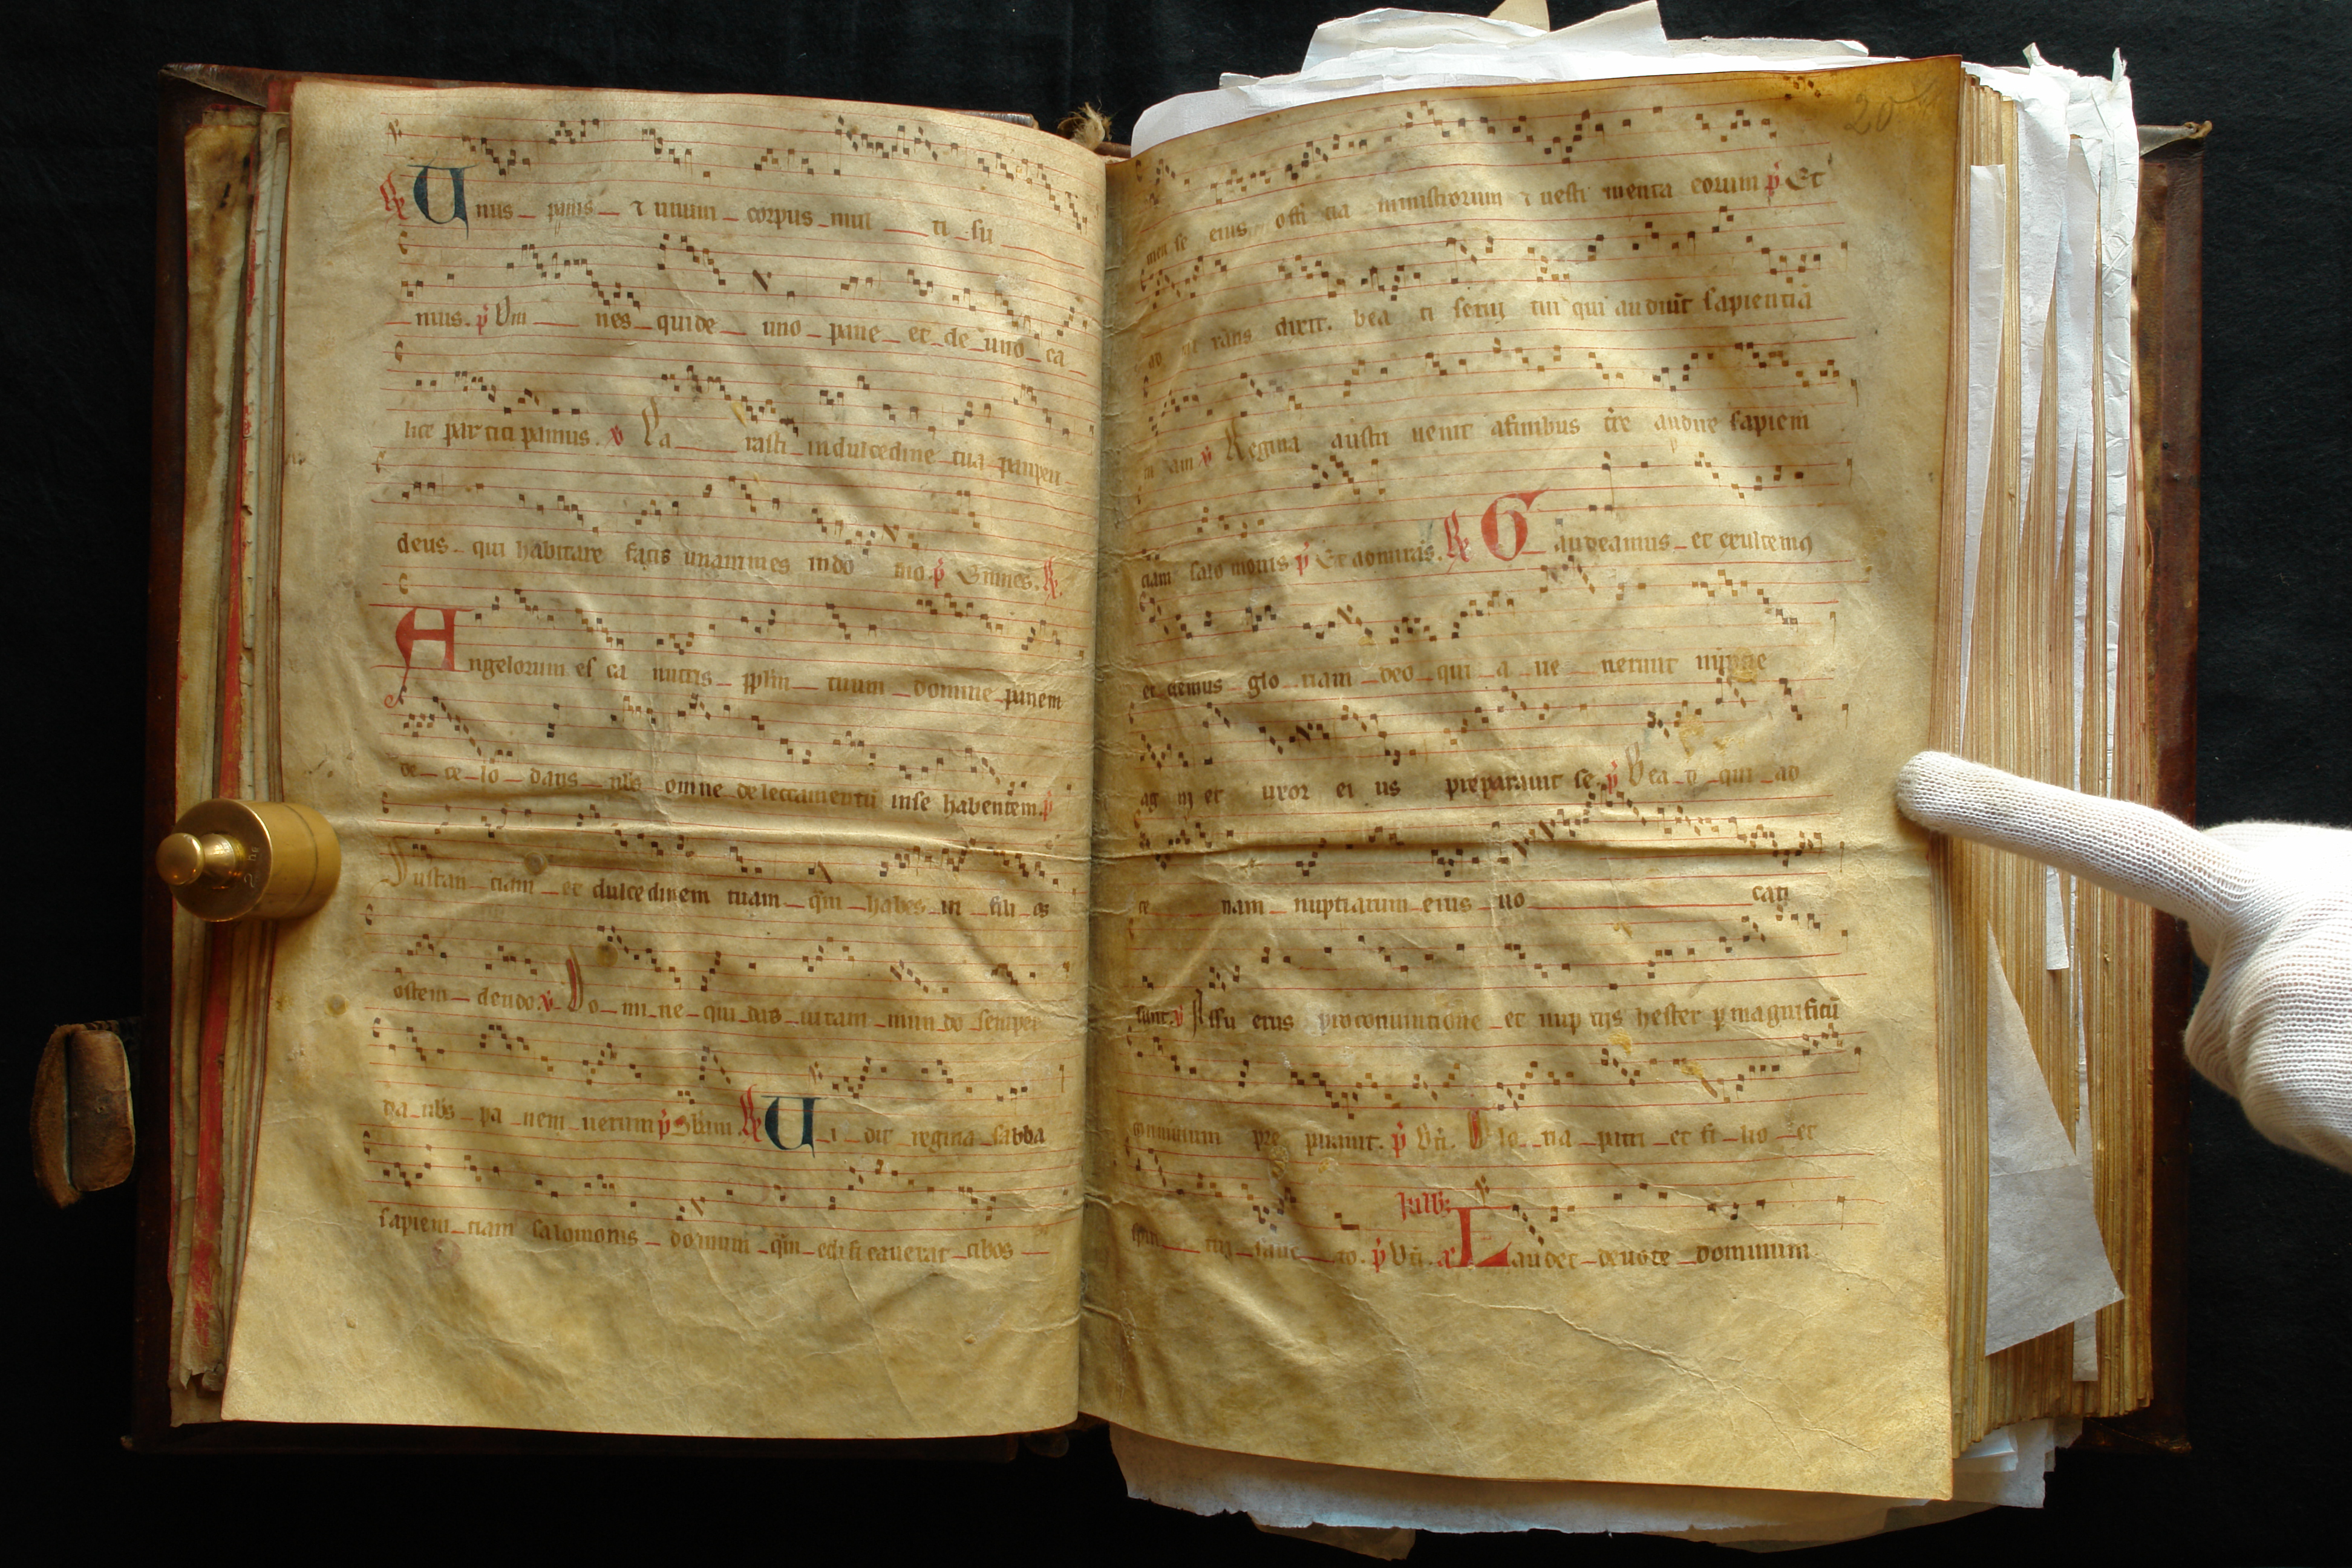 ℟ Unus panis ⁊ unum corpus mul ti su
mus. p̄ Om nes qui de uno pane et de uno ca
lice par tici pamus. ℣ Pa rasti in dulcedine tua pauperi
deus qui habitare facis unanimes in do mo. p̄ Omnes. ℟
Angelorum es ca nutris pplm tuum domine panem
de ce lo dans nobis omne delectamentū in se habentem. p̄
Sustan ciam et dulcedinem tuam q̄m habes in fili os
osten dendo. ℣ Do mi ne qui das uitam mundo semper
da nobis pa nem uerum p̄ ℟ Ui dit regina sabba
sapien tiam salomonis domum q̄m edi fi cauerat cibos
men se eius offi cia ministrorum ⁊ uesti menta eorum p̄ Et
ad mi rans dixit. bea ti serui tui qui audiūt sapientiā
tu am ℣ Regina austri uenit a finibus tr̄e audire sapien
ciam salo monis p̄ Et admirās. ℟ Gaudeamus et exultemꝯ
et demus glo riam deo qui a ue nerunt nuptie
ag ni et uxor ei us preparauit se. p̄ Bea ti qui ad
ce nam nuptiarum eius uo cati
sunt. ℣ Assu erus pro coniunctione et nup tijs hester p̄magnificū
conuiuium pre parauit. p̄ Bt̄i. Glo ria patri et fi lio et
spiri tui sanc to. p̄ Bt̄i. Laudet deuote dominum
20